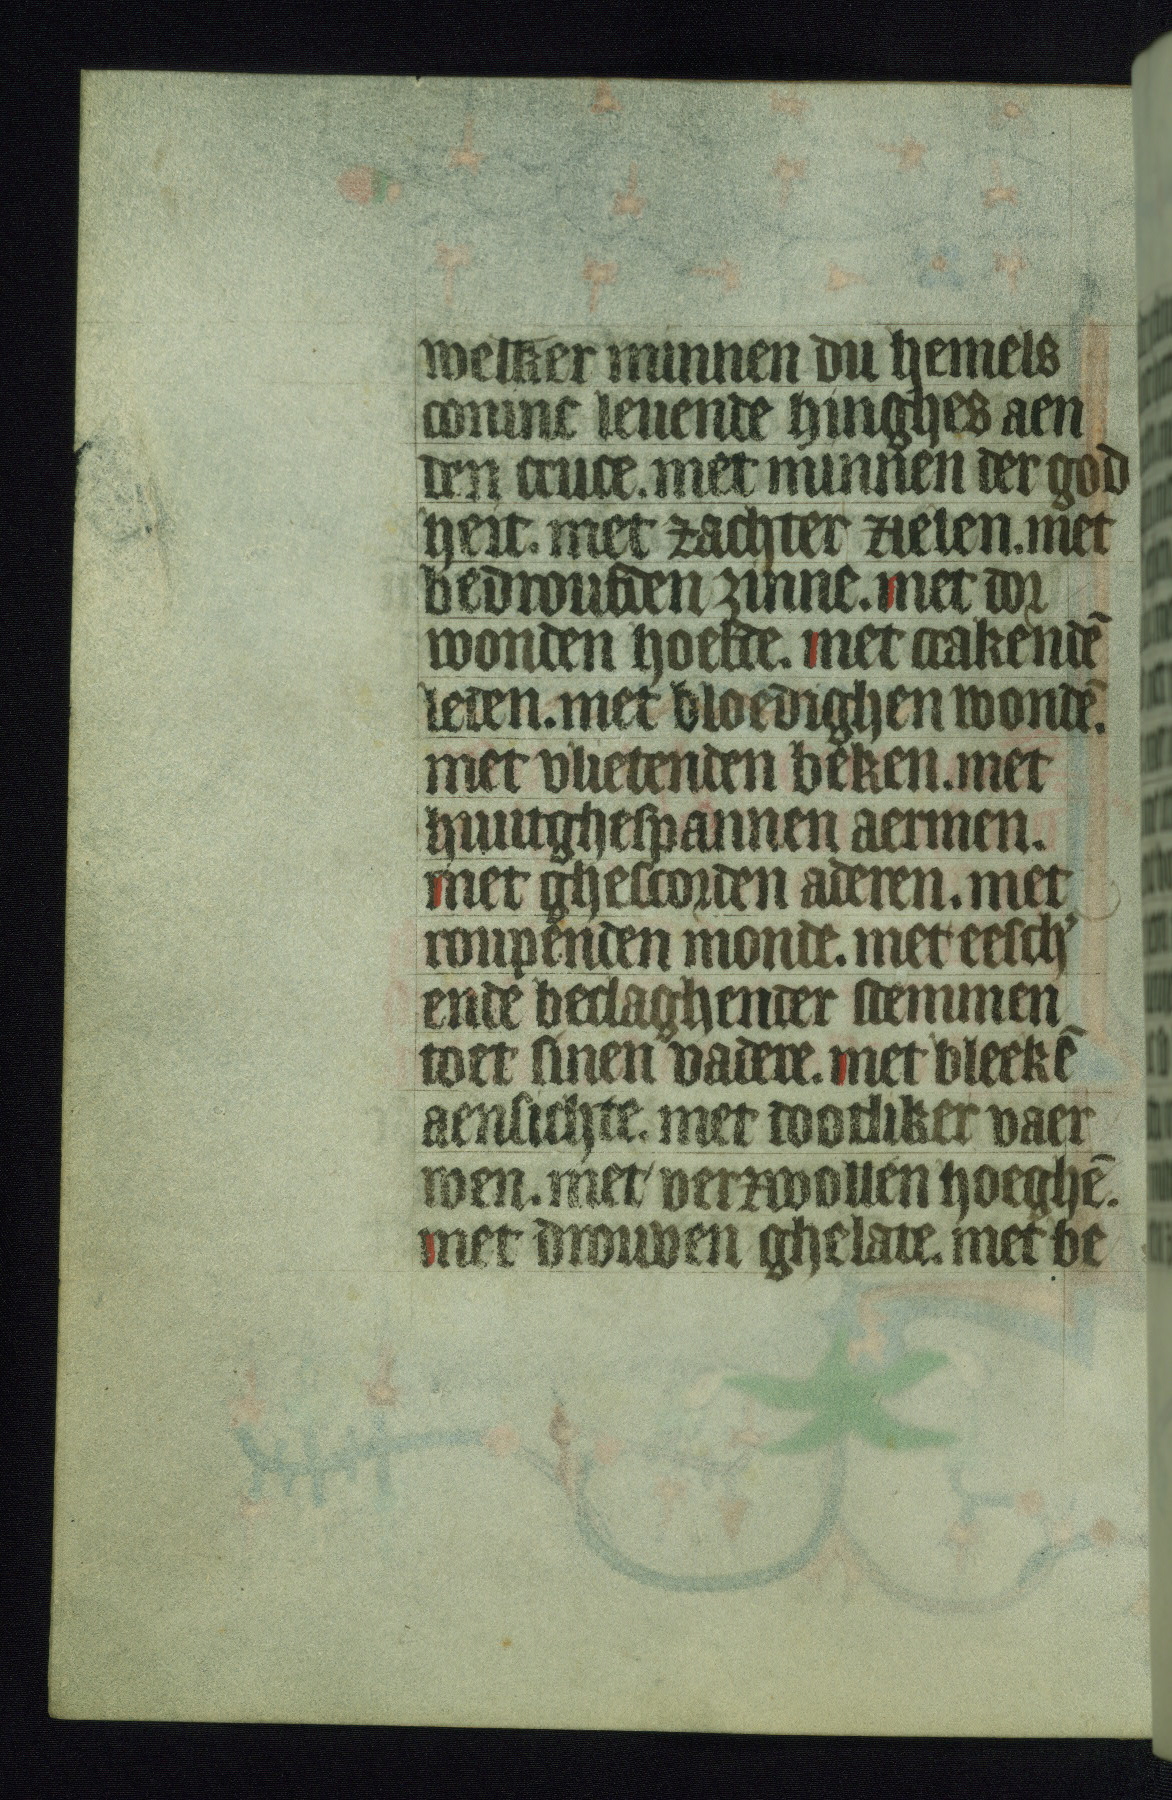 welker minnen du hemels
coninc leuende hinghes aen
den cruce. met minnen der god
heit. met zachter zielen. met
bedroufden zinne. met dor
wonden hoefde. met crakendē
leden. met bloedighen wondē.
met vlietenden beken. met
huutghespannen aermen.
met ghescorden aderen. met
roupenden monde. met eesch'
ende beclaghender stemmen
toet sinen vadere. met bleekē
aensichte. met dootliker vaer
wen. met verzwollen hoeghē.
met drouven ghelate. met be